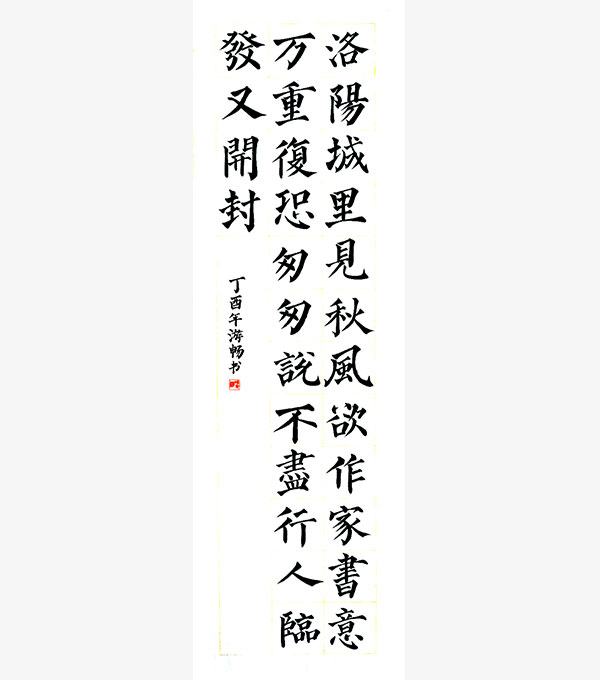 洛陽城里見秋風欲作家書意
万重復恐匆匆説不盡行人臨
發又開封
丁酉年海畅书